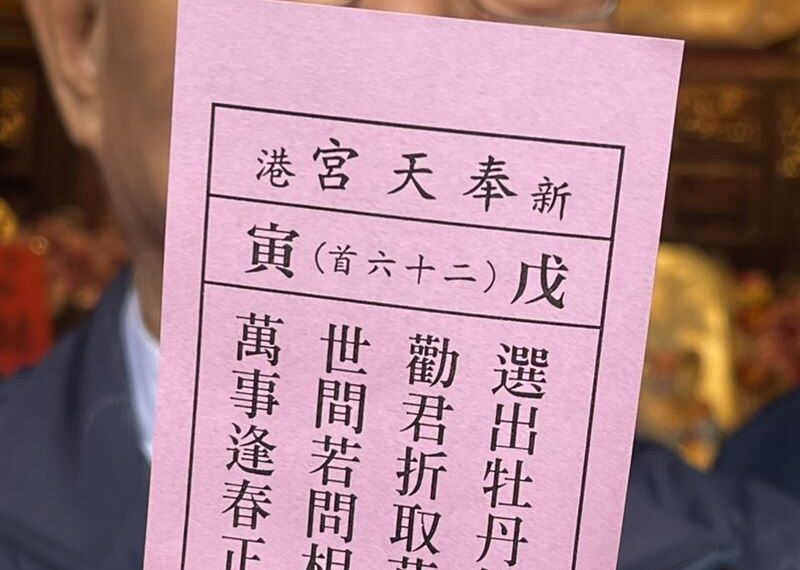 新奉天宮港
戊(二十六首)寅
選出牡丹
勸君折取
世間若問相
萬事逢春正